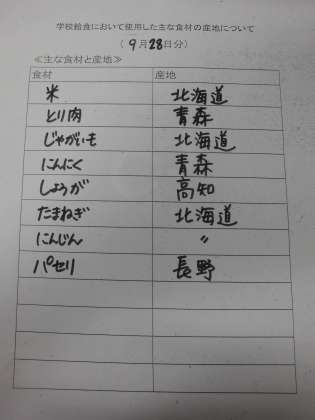 学校給食において使用した主な食材の産地について
(9月28日分)
≪主な食材と産地≫
食材 産地
米 北海道
とり肉 青森
じゃがいも 北海道
にんにく 青森
しょうが 高知
たまねぎ 北海道
にんじん 〃
パセリ 長野